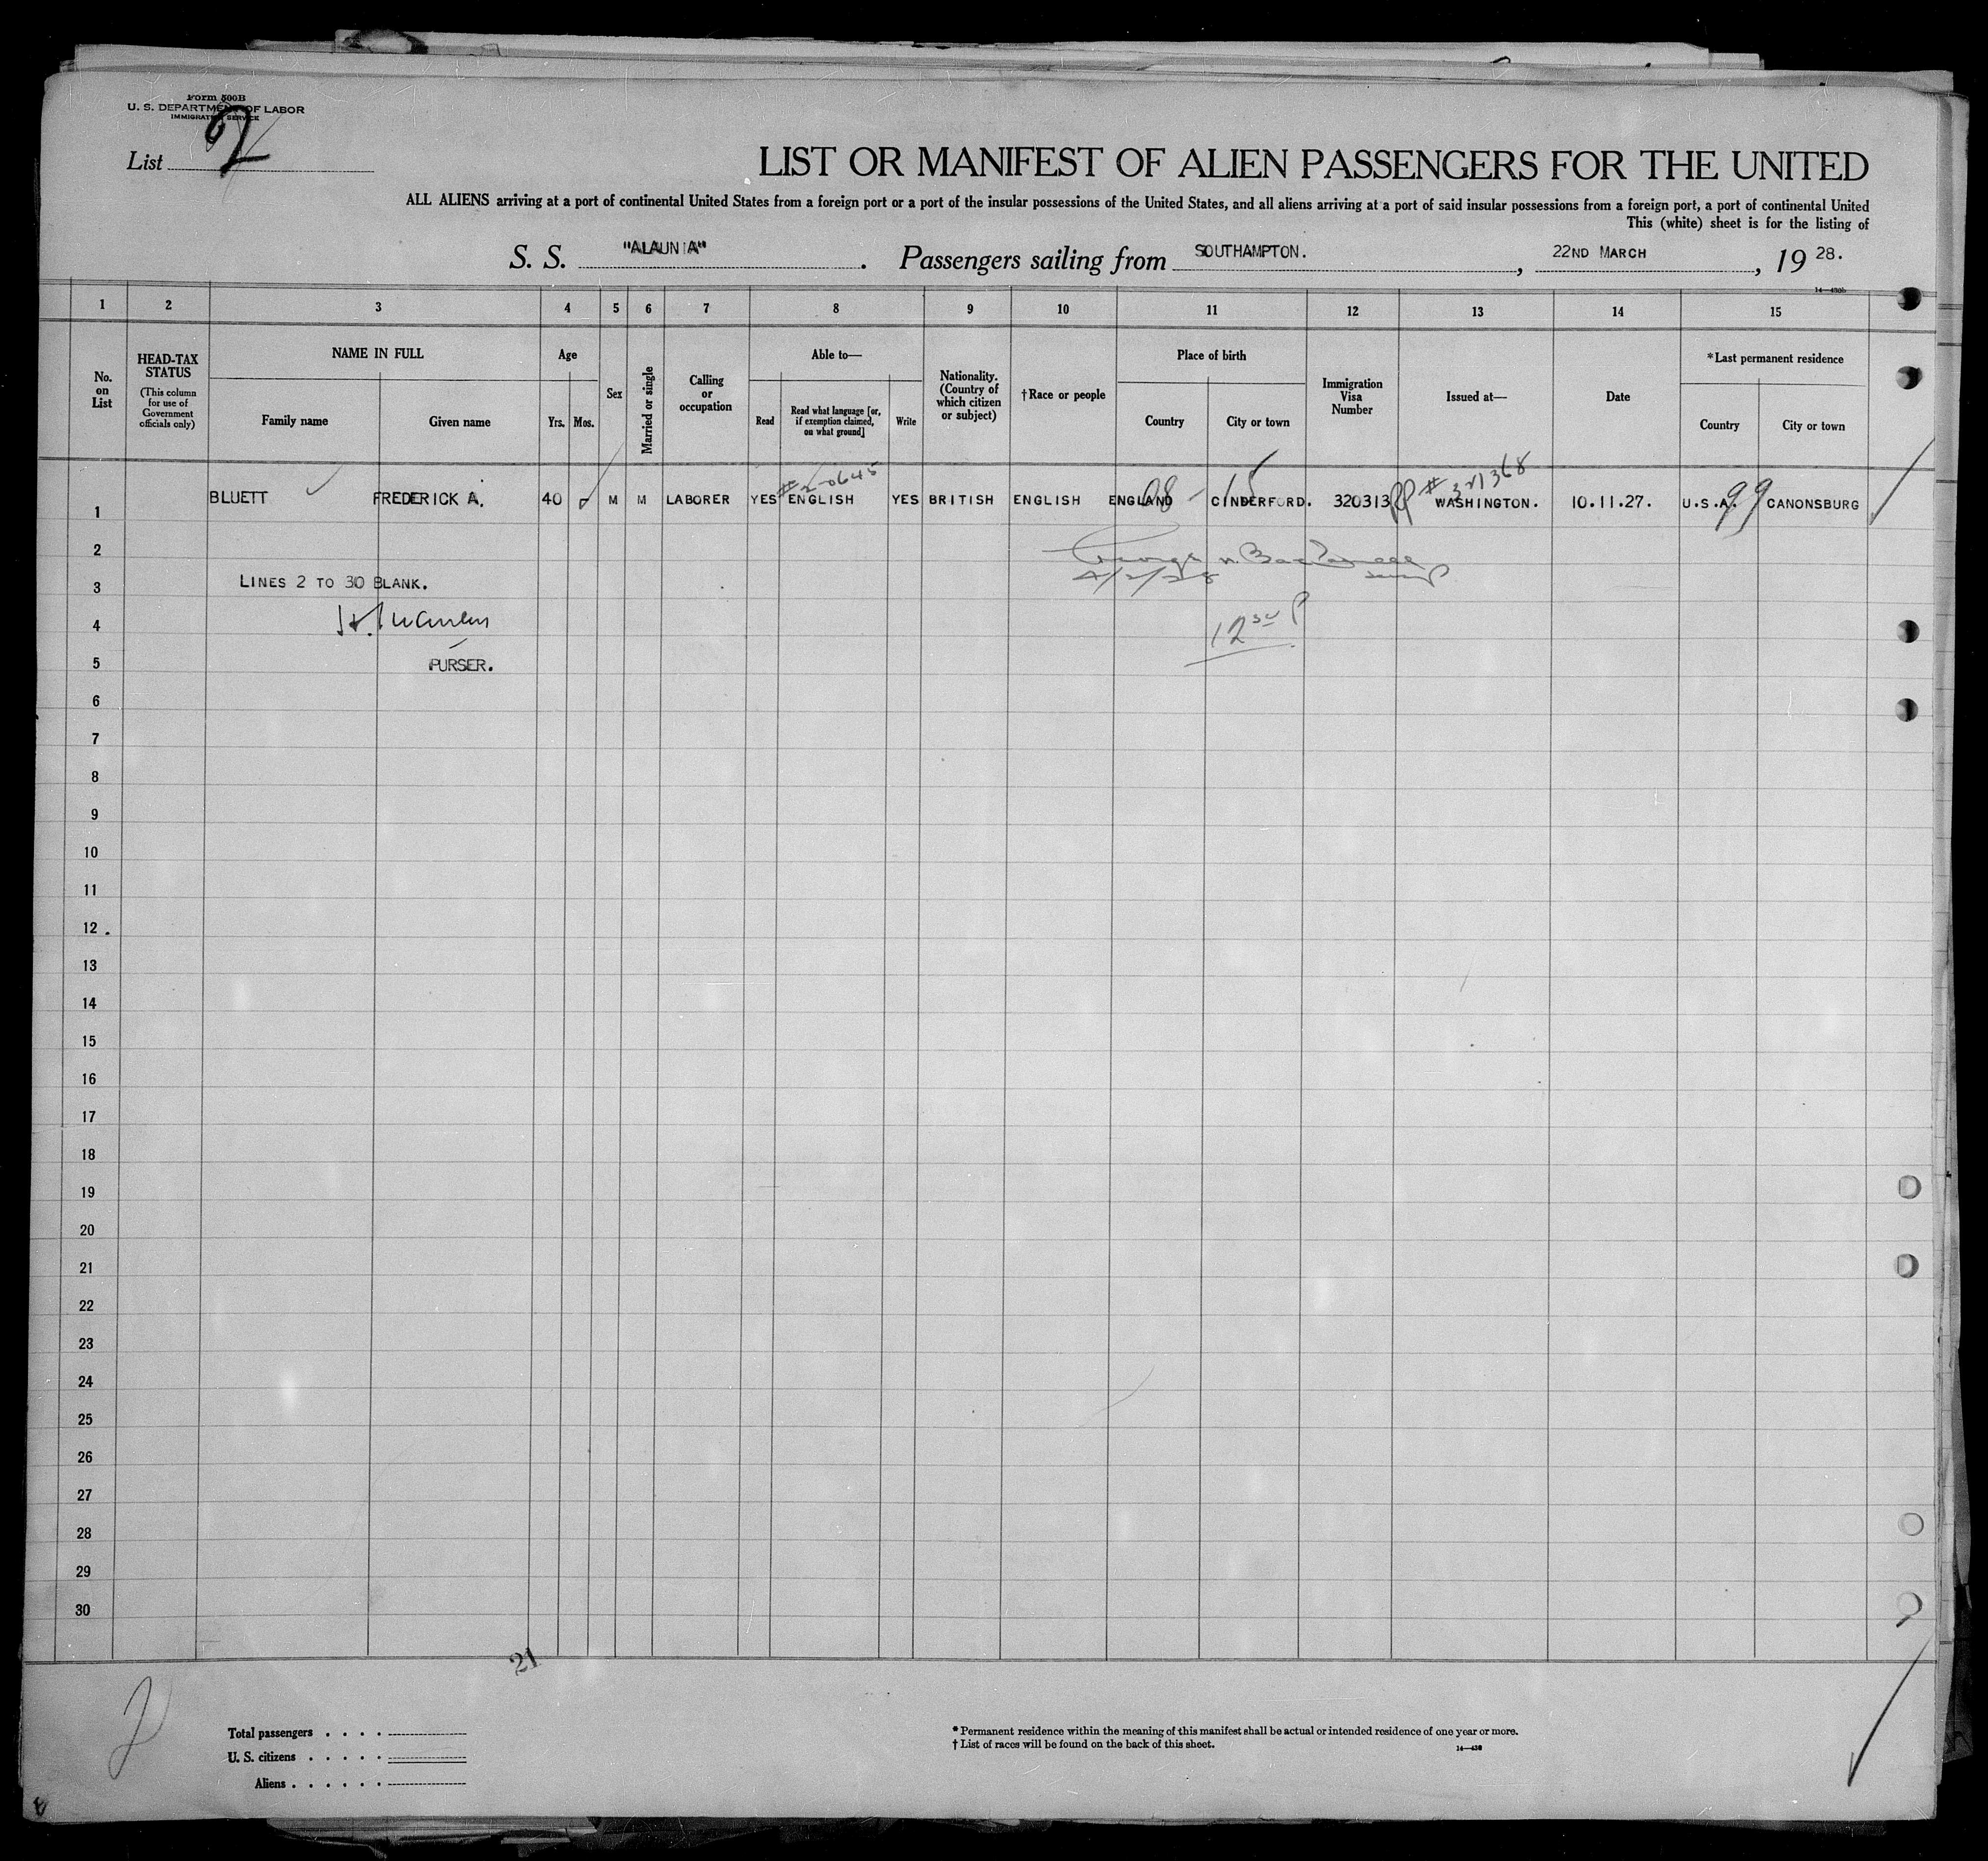 Form 500B
U. S. DEPARTMENT OF LABOR
IMMIGRATION SERVICE
List 2
LIST OR MANIFEST OF ALIEN PASSENGERS FOR THE UNITED
ALL ALIENS arriving at a port of continental United States from a foreign port or a port of the insular possessions of the United States, and all aliens arriving at a port of said insular possessions from a foreign port, a port of continental United
This (white) sheet is for the listing of
S. S. "ALAUNIA". Passengers sailing from SOUTHAMPTON., 22ND MARCH, 19 28.
14—430b
1 2 3 4 5 6 7 8 9 10 11 12 13 14 15
No. on List
HEAD-TAX STATUS
(This column for use of Government officials only)
NAME IN FULL
Family name
Given name
Age
Yrs. Mos.
Sex
Married or single
Calling or occupation
Able to—
Read
Read what language [or, if exemption claimed, on what ground]
Write
Nationality. (Country of which citizen or subject)
†Race or people
Place of birth
Country
City or town
Immigration Visa Number
Issued at—
Date
*Last permanent residence
Country
City or town
#2-0645
# 321368
1 BLUETT FREDERICK A. 40 M M LABORER YES ENGLISH YES BRITISH ENGLISH ENGLAND CINDERFORD. 320313 WASHINGTON. 10.11.27. U.S.A. 99 CANONSBURG
2
3 LINES 2 TO 30 BLANK.
4/2/28
4
5 PURSER.
6
7
8
9
10
11
12
13
14
15
16
17
18
19
20
21
22
23
24
25
26
27
28
29
30
21
2
Total passengers . . . .
U. S. citizens . . . . .
Aliens . . . . . .
* Permanent residence within the meaning of this manifest shall be actual or intended residence of one year or more.
† List of races will be found on the back of this sheet.
14—430